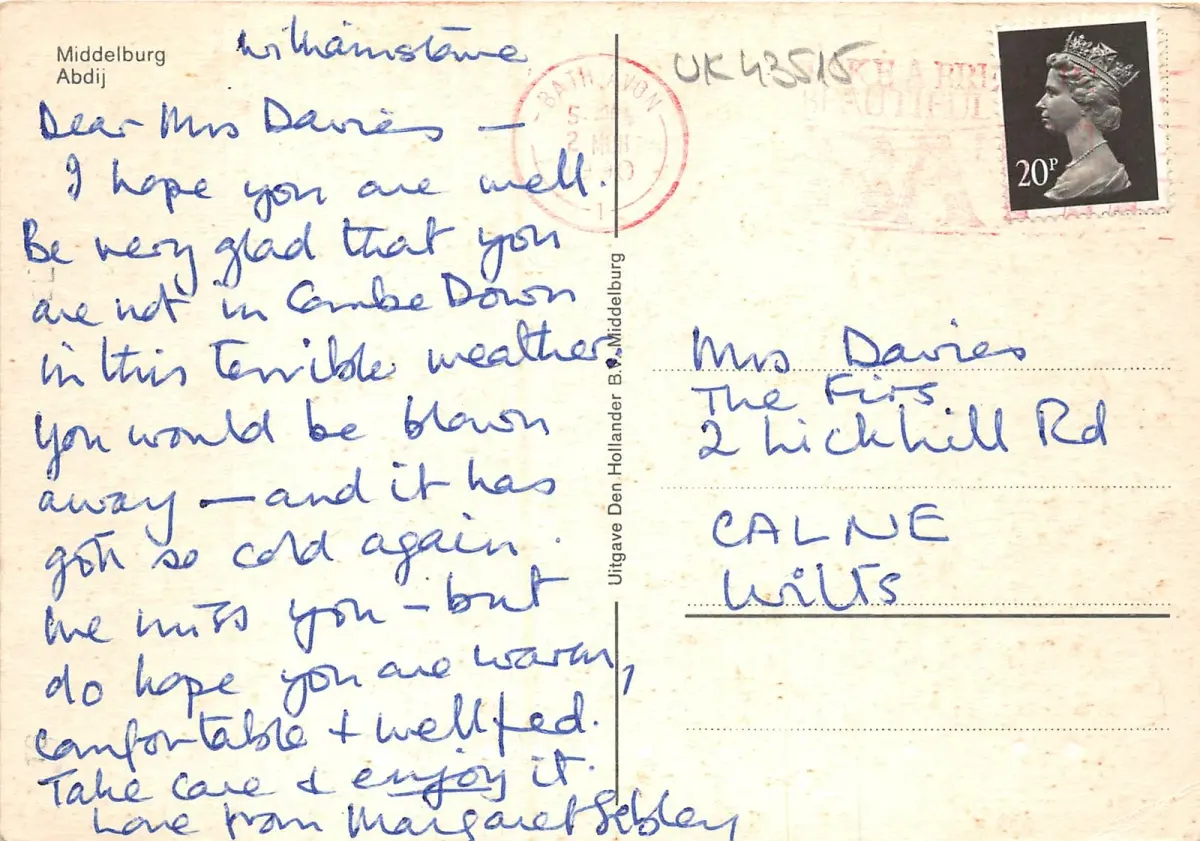 Middelburg
Abdij
Williamstowe
Dear Mrs Davies —
I hope you are well.
Be very glad that you
are not in Combe Down
in this terrible weather.
You would be blown
away — and it has
got so cold again.
We miss you – but
do hope you are warm,
comfortable + well fed.
Take care & enjoy it.
Love from Margaret
Uitgave Den Hollander B.V. Middelburg
UK 43515
BATH AVON
1
BEAUTIFUL
20P
Mrs Davies
The Firs
2 Lickhill Rd
CALNE
Wilts